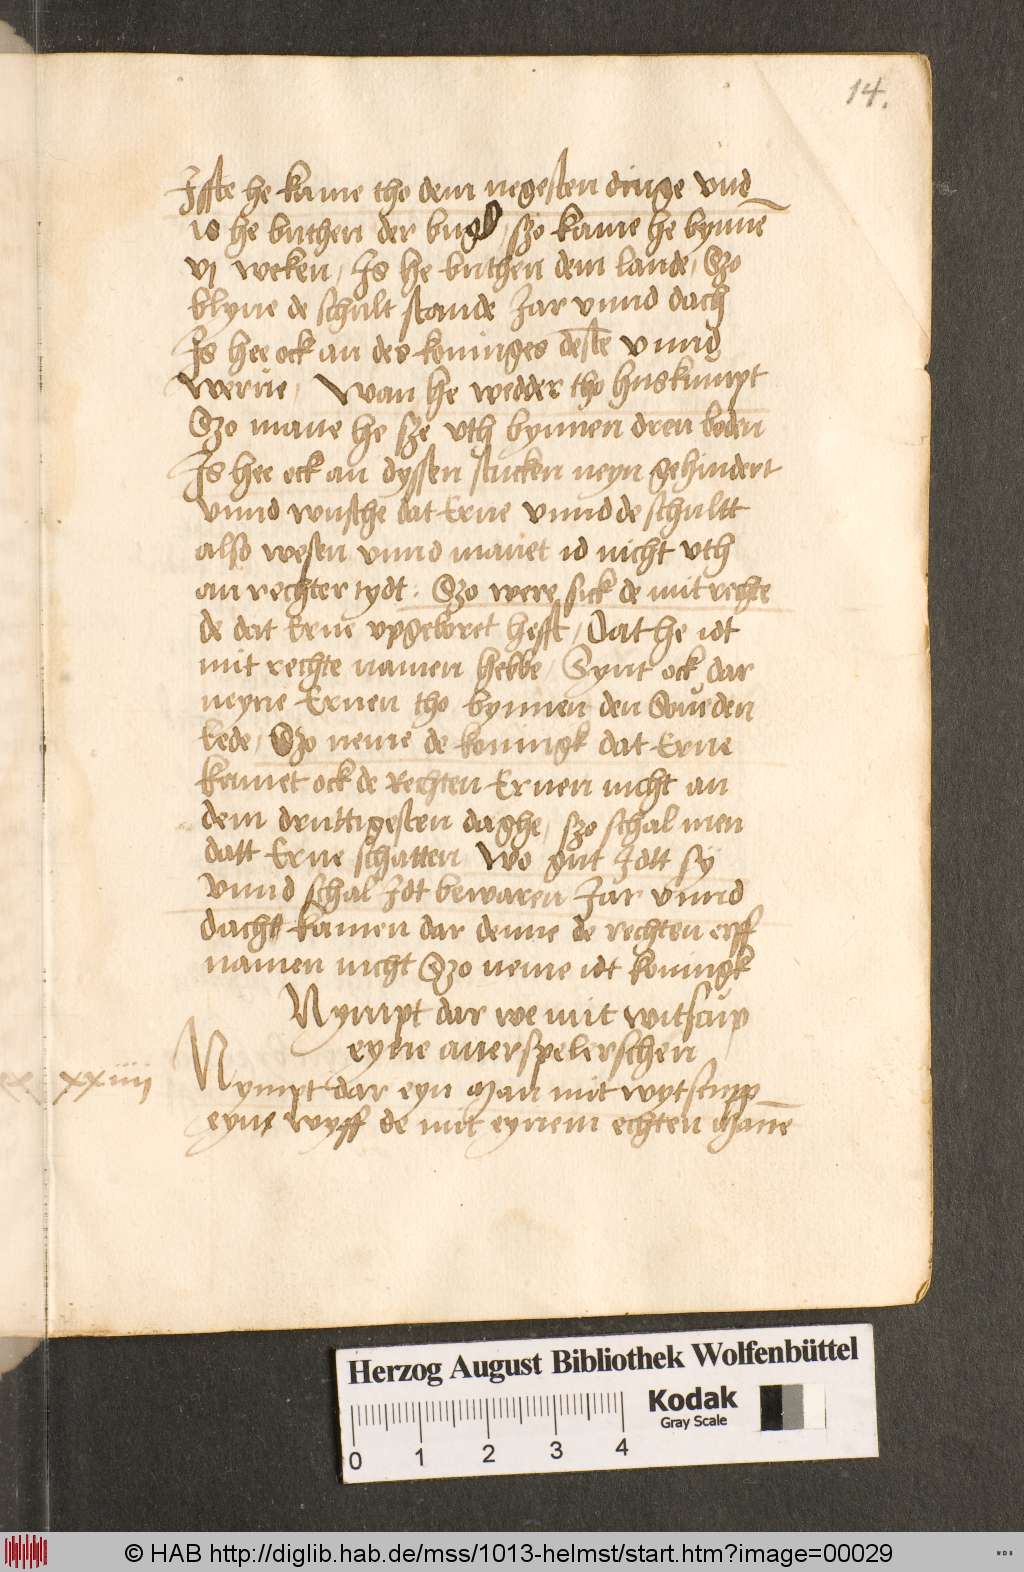 14.
Jffte he kame tho dem negesten dinge vnd
is he buthen der bugd, szo kame he bynnē
vj weken, Is he buthen dem lande, Szo
blyue de schult stande Jar vnnd dach
Is hee ock an des koninges deste vnnd
werue, Wan he wedder tho huskumpt
Szo mane he sze vth bynnen dren boden
Is hee ock an dyssen stucken neyn gehindert
vnnd wusthe dat Erue vnnd de schultt
also wesen vnnd manet id nicht vth
an rechter tydt. Szo were sick de mit rechte
de dat Erue vpgeboret hefft, Dat he idt
mit rechte namen hebbe, Synt ock dar
neyne Eruen tho bynnen den Souerden
bede, Szo neme de koningk dat Erue
kemet ock de Rechten Eruen nicht an
dem druttigesten daghe, szo schal men
datt Erue schatten wo gut Jdtt sy
vnnd schal Jdt bewaren Jar vnnd
dacht kamen dar denne de rechten erff
namen nicht Szo neme idt koningk
Nympt dar we mit witscup
eyne auerspelerschen
xxiiii Nympt dar eyn man mit wytscupp
eyne wyff de mit eynem echten manē
Herzog August Bibliothek Wolfenbüttel
Kodak
Gray Scale
0 1 2 3 4
© HAB http://diglib.hab.de/mss/1013-helmst/start.htm?image=00029